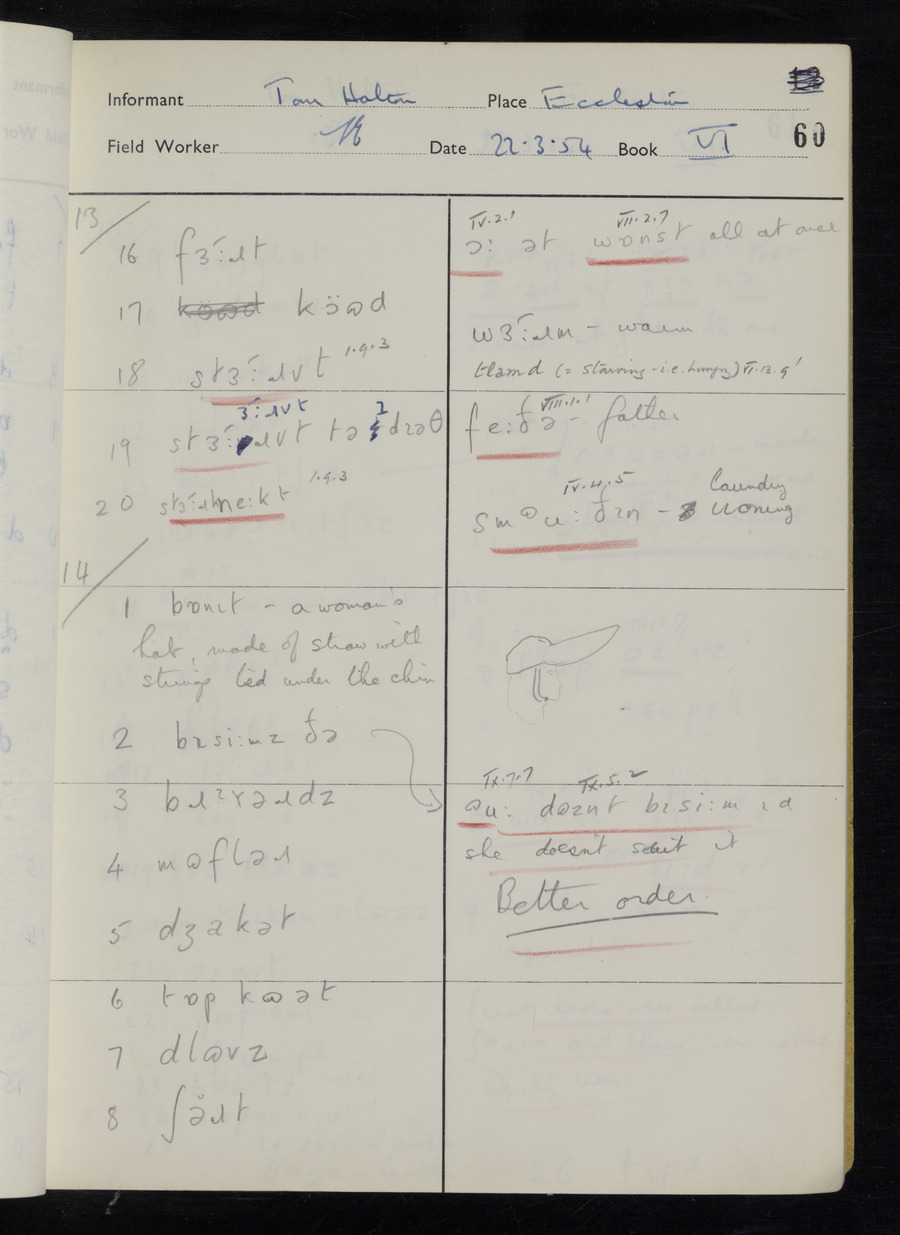 Informant Tom Halton Place Eccleston
Field Worker Date 22.3.54 Book VI 60
13/
16 fɜ́ːɹt
17 köɷd
18 stɜ́ːɹvt I.9.3
ɜ́ːɹvt ɪ
19 stɜ́ːɹvt tə dɪəθ
20 ne:kt I.9.3
14/
1 bɒnɪt - a woman's
hat, made of straw with
strings tied under the chin
2 bɪsiːmz ðə
3 bɹ²ɤəɹdz
4 mɷfləɹ
5 dʒakət
6 tɒp kɷət
7 dlɷvz
8 ʃə̈ɹt
IV.2.1 VII.2.7
ɔː ət wɒnst all at once
wɜ́ːɹm - warm
tlamd (= starving - i.e. hungry) VI.13.9'
VIII.1.1
feːðə - father
IV.4.5 laundry
smɷuːðɪn - ironing
IX.7.7 IX.5.2
ɷuː dɷznt bɪsiːm ɪd
she doesn't suit it
Better order.